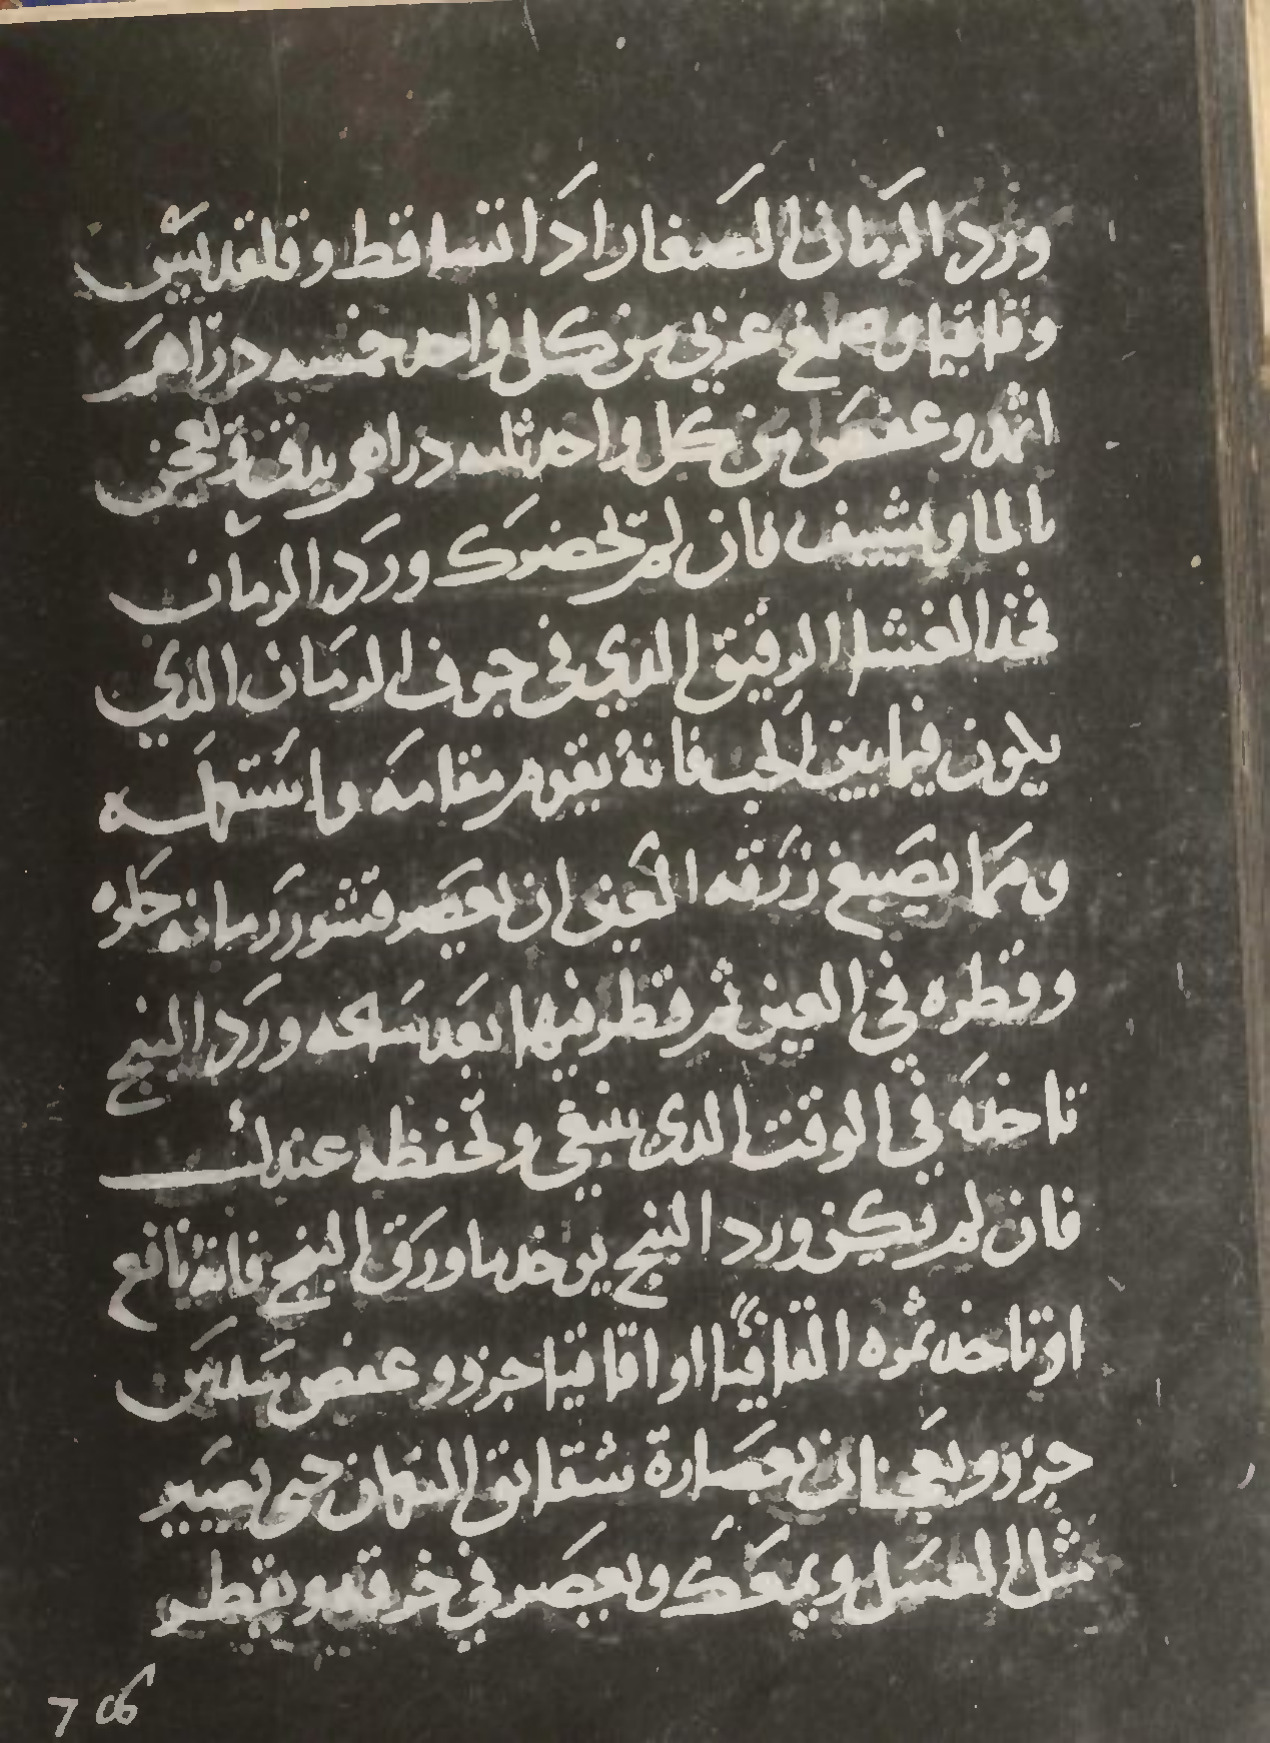 ورد الرمان الصغار اذا تساقط وقلقديس
وقاقيا وصمغ عربي من كل واحد خمسه دراهم
اثمد وعفص من كل واحد ثلثه دراهم يدق ويعجن
بالما ويشيف فان لم تحضرك ورد الرمان
فخذ الغشا الرقيق الذي في جوف الرمان الذي
يكون فيما بين الحب فانه يقوم مقامه واستعمله
ومما يصبغ زرقه العين ان يعصر قشور رمانه حلوه
وقطره في العين ثم قطر فيها بعد ساعه ورد البنج
تاخذه في الوقت الذي ينبغي وتحفظه عندك
فان لم يكن ورد البنج يوخذ ما ورق البنج فانه نافع
او تاخذ ثمره القاقيا او اقاقيا جزوو عفص سدس
جزوو يعجنان بعصارة شقائق النعمان حتى تصير
مثل العسل ويمعك ويعصر في خرقه ويقطر